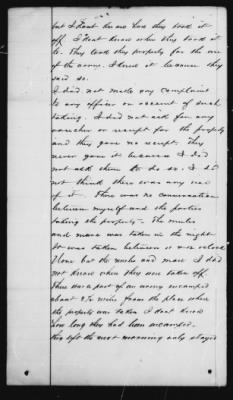 but I dont know how they took it
off. I dont know when they took it
to. They took this property for the use
of the army. I knew it because they
said so.
I did not make any complaint
to any officer on account of such
taking. I did not ask for any
voucher or receipt for the property
and they gave no receipt. They
never gave it because I did
not ask them to do so. I did
not think there was any use
of it. There was no conversation
between myself and the parties
taking the property. The mules
and mare was taken in the night.
It was taken between
but the mules and mare I did
not know when they were taken off.
There was a part of an army encamped
about miles from the place where
the property was taken I dont know
how long they had been encamped.
they left the next morning only stayed